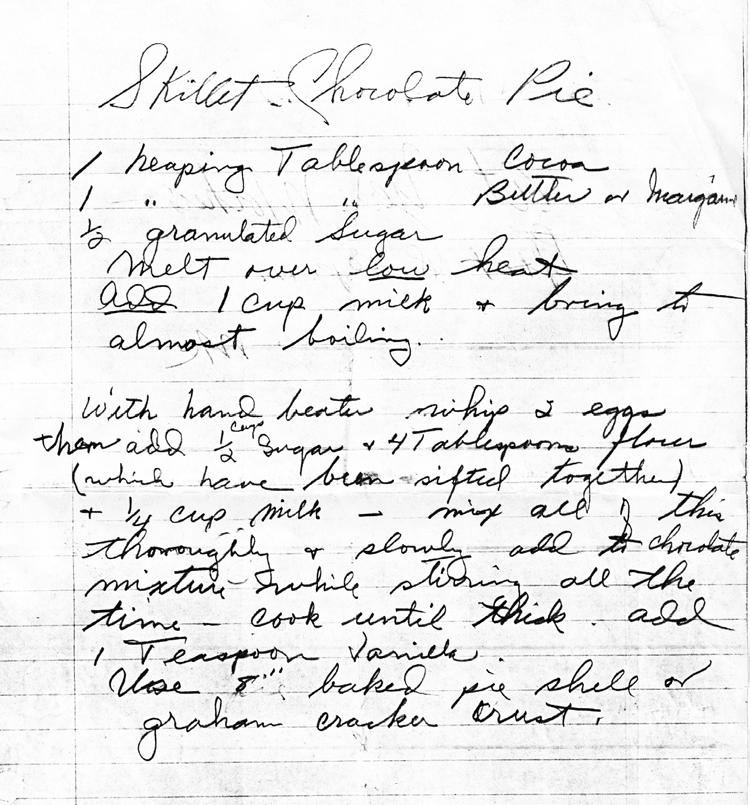 Skillet Chocolate Pie
1 heaping Tablespoon Cocoa
1 " " Butter or Margarine
1/2 granulated Sugar
Melt over low heat
add 1 cup milk + bring to
almost boiling.
With hand beater whip 2 eggs
then add 1/2 cup Sugar + 4 Tablespoons flour
(which have been sifted together)
+ 1/4 cup milk – mix all of this
thoroughly + slowly add to chocolate
mixture while stirring all the
time – cook until thick. add
1 Teaspoon Vanilla.
Use 8" baked pie shell or
graham cracker crust.